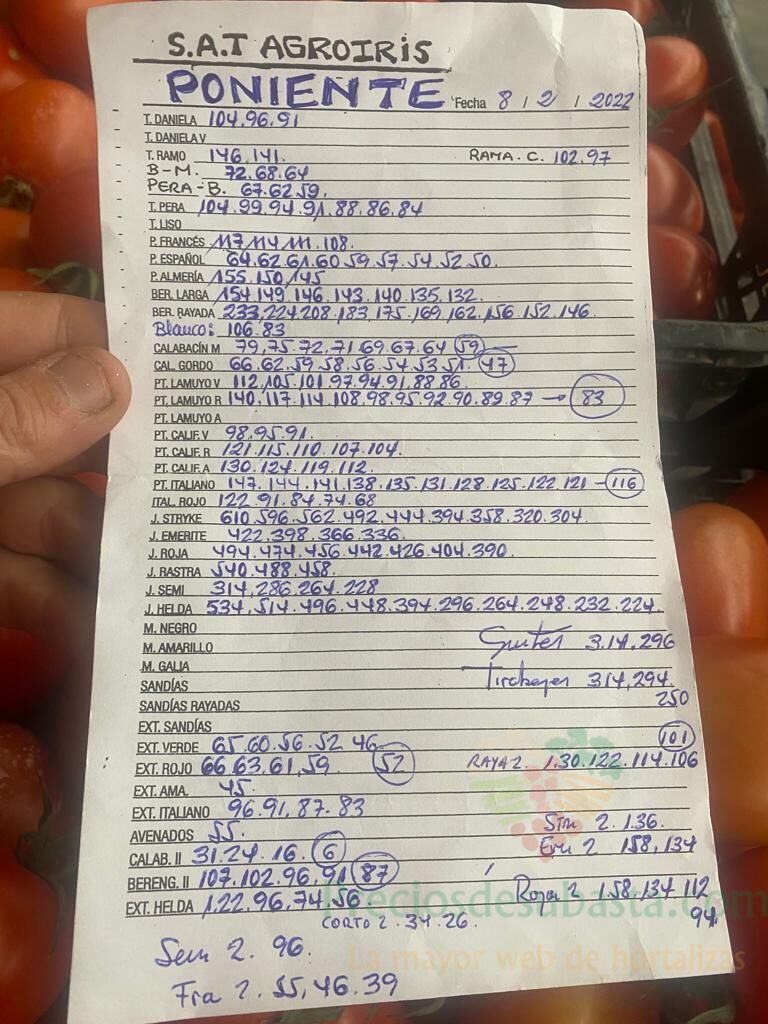 S.A.T AGROIRIS
PONIENTE Fecha 8 / 2 / 2022
T. DANIELA 104.96.91
T. DANIELA V
T. RAMO 146.141. RAMA. C. 102.97
B-M. 72.68.64
PERA-B. 67.62.59.
T. PERA 104.99.94.91.88.86.84
T. LISO
P. FRANCÉS 117.114.111.108.
P. ESPAÑOL 64.62.61.60.59.57.54.52.50.
P. ALMERÍA 155.150.145
BER. LARGA 154.149.146.143.140.135.132.
BER. RAYADA 233.224.208.183.175.169.162.156.152.146.
Blanco: 106.83
CALABACÍN M 79,75.72.71.69.67.64 59
CAL. GORDO 66.62.59.58.56.54.53.51. 47
PT. LAMUYO V 112,105.101.97.94.91.88.86
PT. LAMUYO R 140.117.114.108.98.95.92.90.89.87 → 83
PT. LAMUYO A
PT. CALIF. V 98.95.91.
PT. CALIF. R 121.115.110.107.104.
PT. CALIF. A 130.124.119.112.
PT. ITALIANO 147.144.141.138.135.131.128.125.122.121 – 116
ITAL. ROJO 122.91.84.74.68
J. STRYKE 610.596.562.492.444.394.358.320.304.
J. EMERITE 422.398.366.336.
J. ROJA 494.474.456.442.426.404.390.
J. RASTRA 540.488.458.
J. SEMI 314,286.264.228
J. HELDA 534,514.496.448.394.296.264.248.232.224.
M. NEGRO
M. AMARILLO 314,296
M. GALIA
SANDÍAS 314,294
SANDÍAS RAYADAS 250
EXT. SANDÍAS
EXT. VERDE 65.60.56.52 46 101
EXT. ROJO 66.63.61,59 52 RAYA 2 130.122.114.106
EXT. AMA. 45.
EXT. ITALIANO 96.91.87.83
AVENADOS 55. 2 136.
CALAB. II 31.24.16. 6 2 158,134
BERENG. II 107.102.96.91 87
EXT. HELDA 122.96.74.56 Roja 2 158.134 112
CORTO 2.34.26. 94
Preciosdesubasta.com
Sem 2. 96.
La mayor web de hortalizas
Fra 2. 55,46.39